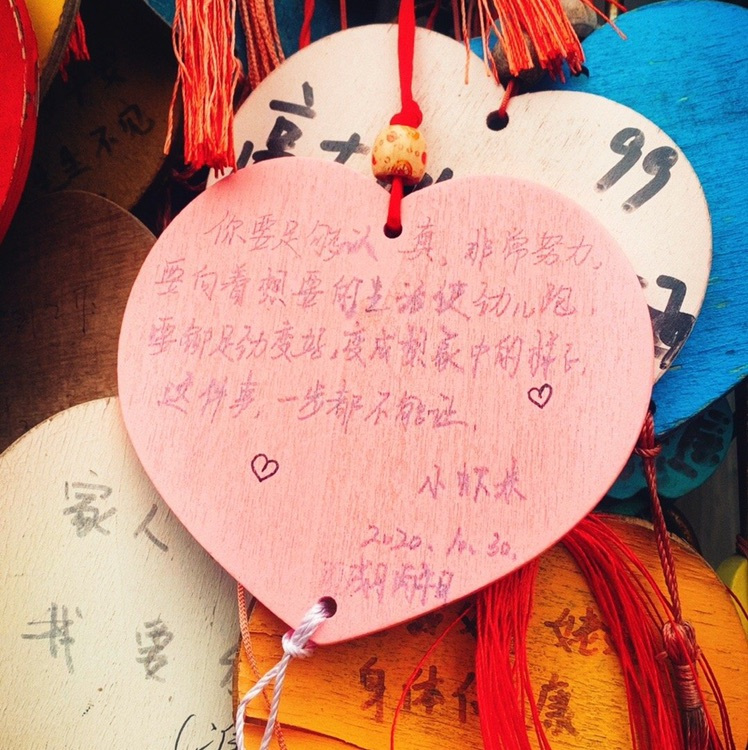 你要足够认真,非常努力,
要向着想要的生活使劲儿跑,
要铆足劲变好,变成想象中的样子,
这件事,一步都不能让,
小虾米
2020.10.30.
99
不见
家人
我要
身体健康